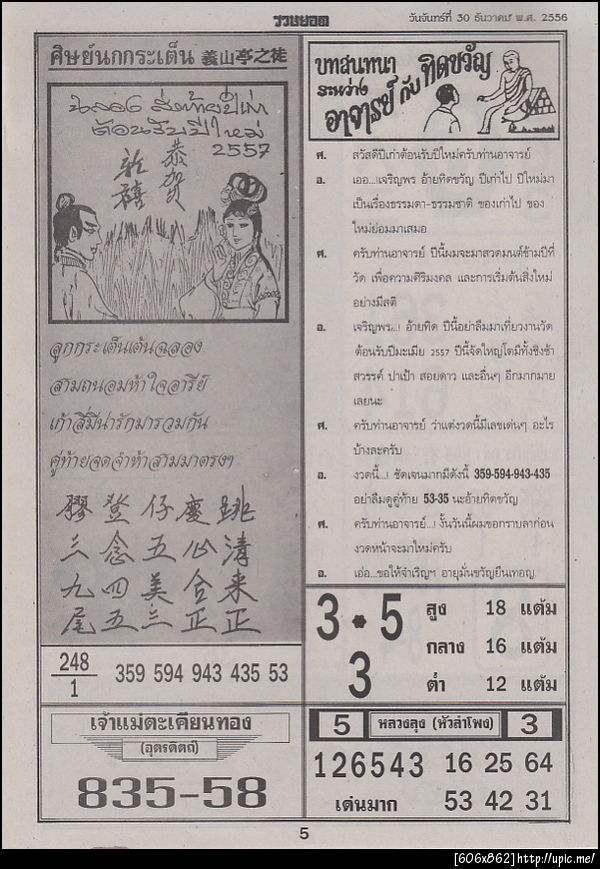 รวมยอด
วันจันทร์ที่ 30 ธันวาคม พ.ศ. 2556
ศิษย์นกกระเต็น 義山亭之徒
ฉลอง ส่งท้ายปีเก่า
ต้อนรับปีใหม่
2557
恭賀
新禧
ลูกกระเต็นเต้นฉลอง
สามถนอมห้าใจอารีย์
เก้าสี่มีน่ารักมารวมกัน
คู่ท้ายจดจำห้าสามมาตรงๆ
膠登仔慶跳
三念五心清
九四美合来
尾五三正正
248
1
359 594 943 435 53
เจ้าแม่ตะเคียนทอง
(อุตรดิตถ์)
835-58
บทสนทนา
ระหว่าง
อาจารย์ กับ ทิดขวัญ
ศ. สวัสดีปีเก่าต้อนรับปีใหม่ครับท่านอาจารย์
อ. เออ...เจริญพร อ้ายทิดขวัญ ปีเก่าไป ปีใหม่มา
เป็นเรื่องธรรมดา-ธรรมชาติ ของเก่าไป ของ
ใหม่ย่อมมาเสมอ
ศ. ครับท่านอาจารย์ ปีนี้ผมจะมาสวดมนต์ข้ามปีที่
วัด เพื่อความศิริมงคล และการเริ่มต้นสิ่งใหม่
อย่างมีสติ
อ. เจริญพร..! อ้ายทิด ปีนี้อย่าลืมมาเที่ยวงานวัด
ต้อนรับปีมะเมีย 2557 ปีนี้จัดใหญ่โตมีทั้งชิงช้า
สวรรค์ ปาเป้า สอยดาว และอื่นๆ อีกมากมาย
เลยนะ
ศ. ครับท่านอาจารย์ ว่าแต่งวดนี้มีเลขเด่นๆ อะไร
บ้างละครับ
อ. งวดนี้...! ชัดเจนมากมีดังนี้ 359-594-943-435
อย่าลืมดูคู่ท้าย 53-35 นะอ้ายทิดขวัญ
ศ. ครับท่านอาจารย์...! งั้นวันนี้ผมขอกราบลาก่อน
งวดหน้าจะมาใหม่ครับ
อ. เอ่อ...ขอให้จำเริญฯ อายุมั่นขวัญยืนเทอญ
3 • 5
3
สูง 18 แต้ม
กลาง 16 แต้ม
ต่ำ 12 แต้ม
5 หลวงลุง (หัวลำโพง) 3
126543 16 25 64
เด่นมาก 53 42 31
5
[606x862]http://upic.me/